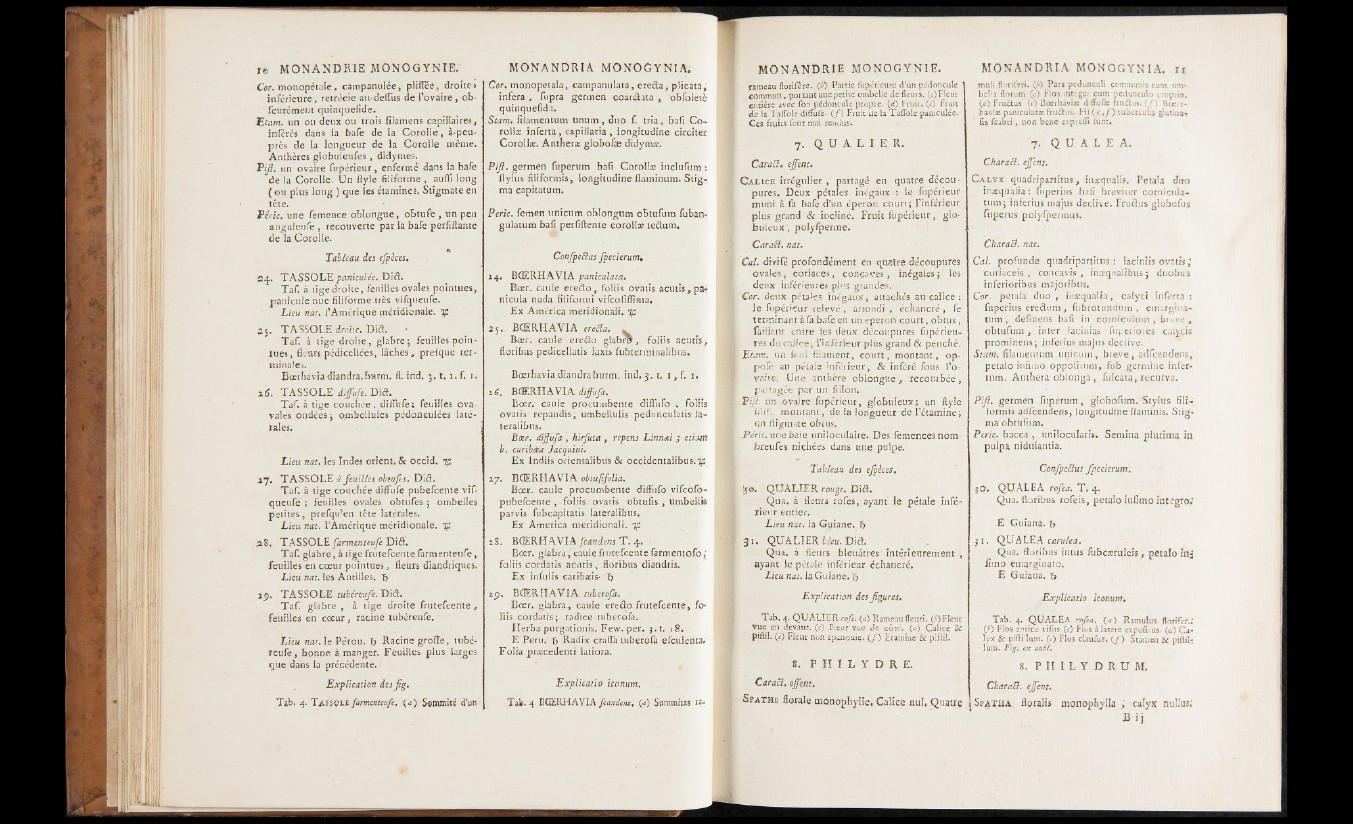 10 MONANDRIE MONOGYNIE.
Cor. monopétale, campanulée, plissée, droite,
inférieure, retrécie au-dessus de l'ovaire, ob-
scurément quinquefide.
Etam. un ou deux ou trois filamens capillaires,
insérés dans la base de la Corolle, à-peu-
près de la longueur de la Corolle même.
Anthères globuleuses, didymes.
Pist. un ovaire supérieur, enfermé dans la base
de la Corolle. Un style filiforme, aussi long
(ou plus long) que les étamines. Stigmate en
tête.
Péric. une semence oblongue, obtuse, un peu
anguleuse, recouverte par la base persistante
de la Corolle.
Tableau des espèces.
24. TASSOLE paniculée. Dict.
Tas. à tige droite, feuilles ovales pointues,
panicule nue filiforme très-visqueuse.
Lieu nat. l'Amérique méridionale. ♃
25. TASSOLE droite. Dict.
Tas. à tige droite, glabre; feuilles poin-
tues, fleurs pédicellées, lâches, presque ter-
minales.
Bœrhavia diandra. burm. fl. ind. 3. t. 1. f. 1.
26. TASSOLE diffuse. Dict.
Tas. à tige couchée, diffuse; feuilles ova-
vales ondées; ombellules pédonculées laté-
rales.
Lieu nat. les Indes orient. & occid. ♃
27. TASSOLE à feuilles obtuses. Dict.
Tas. à tige couchée diffuse pubescente vis-
queuse; feuilles ovales obtuses; ombelles
petites, presqu'en tête latérales.
Lieu nat. l'Amérique méridionale. ♃
28. TASSOLE sarmenteuse Dict.
Tas. glabre, à tige frutescente sarmenteuse,
feuilles en cœur pointues, fleurs diandriques.
Lieu nat. les Antilles. ♄
29. TASSOLE tubéreuse. Dict.
Tas. glabre, à tige droite frutescente,
feuilles en cœur, racine tubéreuse.
Lieu nat. le Pérou. ♄ Racine grosse, tubé-
reuse, bonne à manger. Feuilles plus larges
que dans la précédente.
Explication des fig.
Tab. 4. TASSOLE sarmenteuse. (a) Sommité d'un
MONANDRIA MONOGYNIA.
Cor. monopetala, campanulata, erecta, plicata,
infera, supra germen coarctata, obsoletè
quinquefida.
Stam. filamentum unum, duo s. tria, basi Co-
rollæ inserta, capillaria, longitudine circiter
Corollæ. Antheræ globosæ didymæ.
Pist. germen superum basi Corollæ inclusum:
stylus filiformis, longitudine staminum. Stig-
ma capitatum.
Peric. semen unicum oblongum obtusum suban-
gulatum basi persistente corollæ tectum.
Conspectus specierum.
24. BŒRHAVIA paniculata.
Bœr. caule erecto, foliis ovatis acutis, pa-
nicula nuda filiformi viscosissima.
Ex América meridionali. ♃
25. BŒRHAVIA erecta.
Bœr. caule erecto glabro, foliis acutis,
floribus pedicellatis laxis subterminalibus.
Bœrhavia diandra burm. ind. 3. t. 1, f. 1.
26. BŒRHAVIA diffusa.
Bœr. caule procumbente diffuso, foliis
ovatis repandis, umbellulis pedunculatis la-
teralibus.
Bœr. diffusa, hirsuta, repens Linnæi; etiam
b. caribæa Jacquini.
Ex Indiis orientalibus & occidentalibus. ♃
27. BŒRHAVIA obtusifolia.
Bœr. caule procumbente diffuso viscoso-
pubescente, foliis ovatis obtusis, umbellis
parvis subcapitatis lateralibus.
Ex America meridionali. ♃
28. BŒRHAVIA scandens T. 4.
Bœr. glabra, caule frutescente sarmentoso,
foliis cordatis acutis, floribus diandris.
Ex insulis caribæis. ♄
29. BŒRHAVIA tuberosa.
Bœr. glabra, caule erecto frutescente, fo-
liis cordatis; radice tuberosa.
Herba purgationis. Few. per. 3. t. 18.
E Peru. ♄ Radix crassa tuberosa esculenta.
Folia præcedenti latiora.
Explicatio iconum.
Tab. 4 BŒRHAVIA scandens, (a) Summitas ra-
MONANDRIE MONOGYNIE.
rameau florifère. (b) Partie supérieure d'un pédoncule
commun, portant une petite ombelle de fleurs. (c) Fleur
entière avec son pédoncule propre. (d) Fruit. (e) Fruit
de la Tassole diffuse. (f) Fruit de la Tassole paniculée.
Ces fruits sont mal rendus.
7. QUALIER.
Caract. essent.
CALICE irrégulier, partagé en quatre décou-
pures. Deux pétales inégaux: le supérieur
muni à sa base d'un éperon court; l'inférieur
plus grand & incliné. Fruit supérieur, glo-
buleux, polysperme.
Caract. nat.
Cal. divisé profondément en quatre découpures
ovales, coriaces, concaves, inégales; les
deux inférieures plus grandes.
Cor. deux pétales inégaux, attachés au calice:
le supérieur relevé, arrondi, échancré, se
terminant à sa base en un éperon court, obtus,
saillant entre les deux découpures supérieu-
res du calice; l'inférieur plus grand & penché.
Etam. un seul filament, court, montant, op-
posé au pétale inférieur, & inséré sous l'o-
vaire. Une anthère oblongue, recourbée,
partagée par un sillon.
Pist. un ovaire supérieur, globuleux; un style
filif. montant, de la longueur de l'étamine;
un stigmate obtus.
Péric. une baie uniloculaire. Des semences nom-
breuses nichées dans une pulpe.
Tableau des espèces.
30. QUALIER rouge. Dict.
Qua. à fleurs roses, ayant le pétale infé-
rieur entier.
Lieu nat. la Guiane. ♄
31. QUALIER bleu. Dict.
Qua. à fleurs bleuâtres intérieurement,
ayant le pétale inférieur échancré.
Lieu nat. la Guiane. ♄
Explication des figures.
Tab. 4. QUALIER rose. (a) Rameau fleuri. (b) Fleur
vue en devant. (c) Fleur vue de côté. (d) Calice &
pistil. (e) Fleur non épanouie. (f) Etamine & pistil.
8. PHILYDRE.
Caract. essent.
SPATHE florale monophylle. Calice nul. Quatre
MONANDRIA MONOGYNIA. 11
muli floriferi. (b) Pars pedunculi communis cum um-
bella florum (c) Flos integer cum pedunculo proprio.
(d) Fructus (e) Bœrhaviæ diffusæ fructus. (f) Bœr-
haviæ paniculatæ fructus. Hi (e, f) tuberculis glutino-
sis scabri, non bene expressi sunt.
7. QUALEA.
Charact. essent.
CALYX quadripartitus, inæqualis. Petala duo
inæqualia: superius basi breviter cornicula-
tum; inferius majus declive. Fructus globosus
superus polyspermus.
Charact. nat.
Cal. profunde quadripartitus: laciniis ovatis,
coriaceis, concavis, inæqualibus; duobus
inferioribus majoribus.
Cor. petala duo, inæqualia, calyci inserta:
superius erectum, subrotundum, emargina-
tum, desinens basi in corniculum, breve,
obtusum, inter lacinias superiores calycis
prominens; inferius majus declive.
Stam. filamentum unicum, breve, adscendens,
petalo infimo oppositum, sub germine inser-
tum. Anthera oblonga, sulcata, recurva.
Pist. germen superum, globosum. Stylus fili-
formis adscendens, longitudine staminis. Stig-
ma obtusum.
Peric. bacca, unilocularis. Semina plurima in
pulpa nidulantia.
Conspectus specierum.
30. QUALEA rosea. T. 4.
Qua. floribus roseis, petalo infimo integro.
E Guiana. ♄
31. QUALEA cœrulea.
Qua. floribus intus subcœruleis, petalo in-
fimo emarginato.
E Guiana. ♄
Explicatio iconum.
Tab. 4. QUALEA rosea. (a) Ramulus florifer.
(b) Flos antice visus (c) Flos à latere expositus. (d) Ca-
lyx & pistillum. (e) Flos clausus. (f) Stamen & pistil-
lum. Fig. ex aubl.
8. PHILYDRUM.
Charact. essent.
SPATHA floralis monophylla; calyx nullus.
B ij